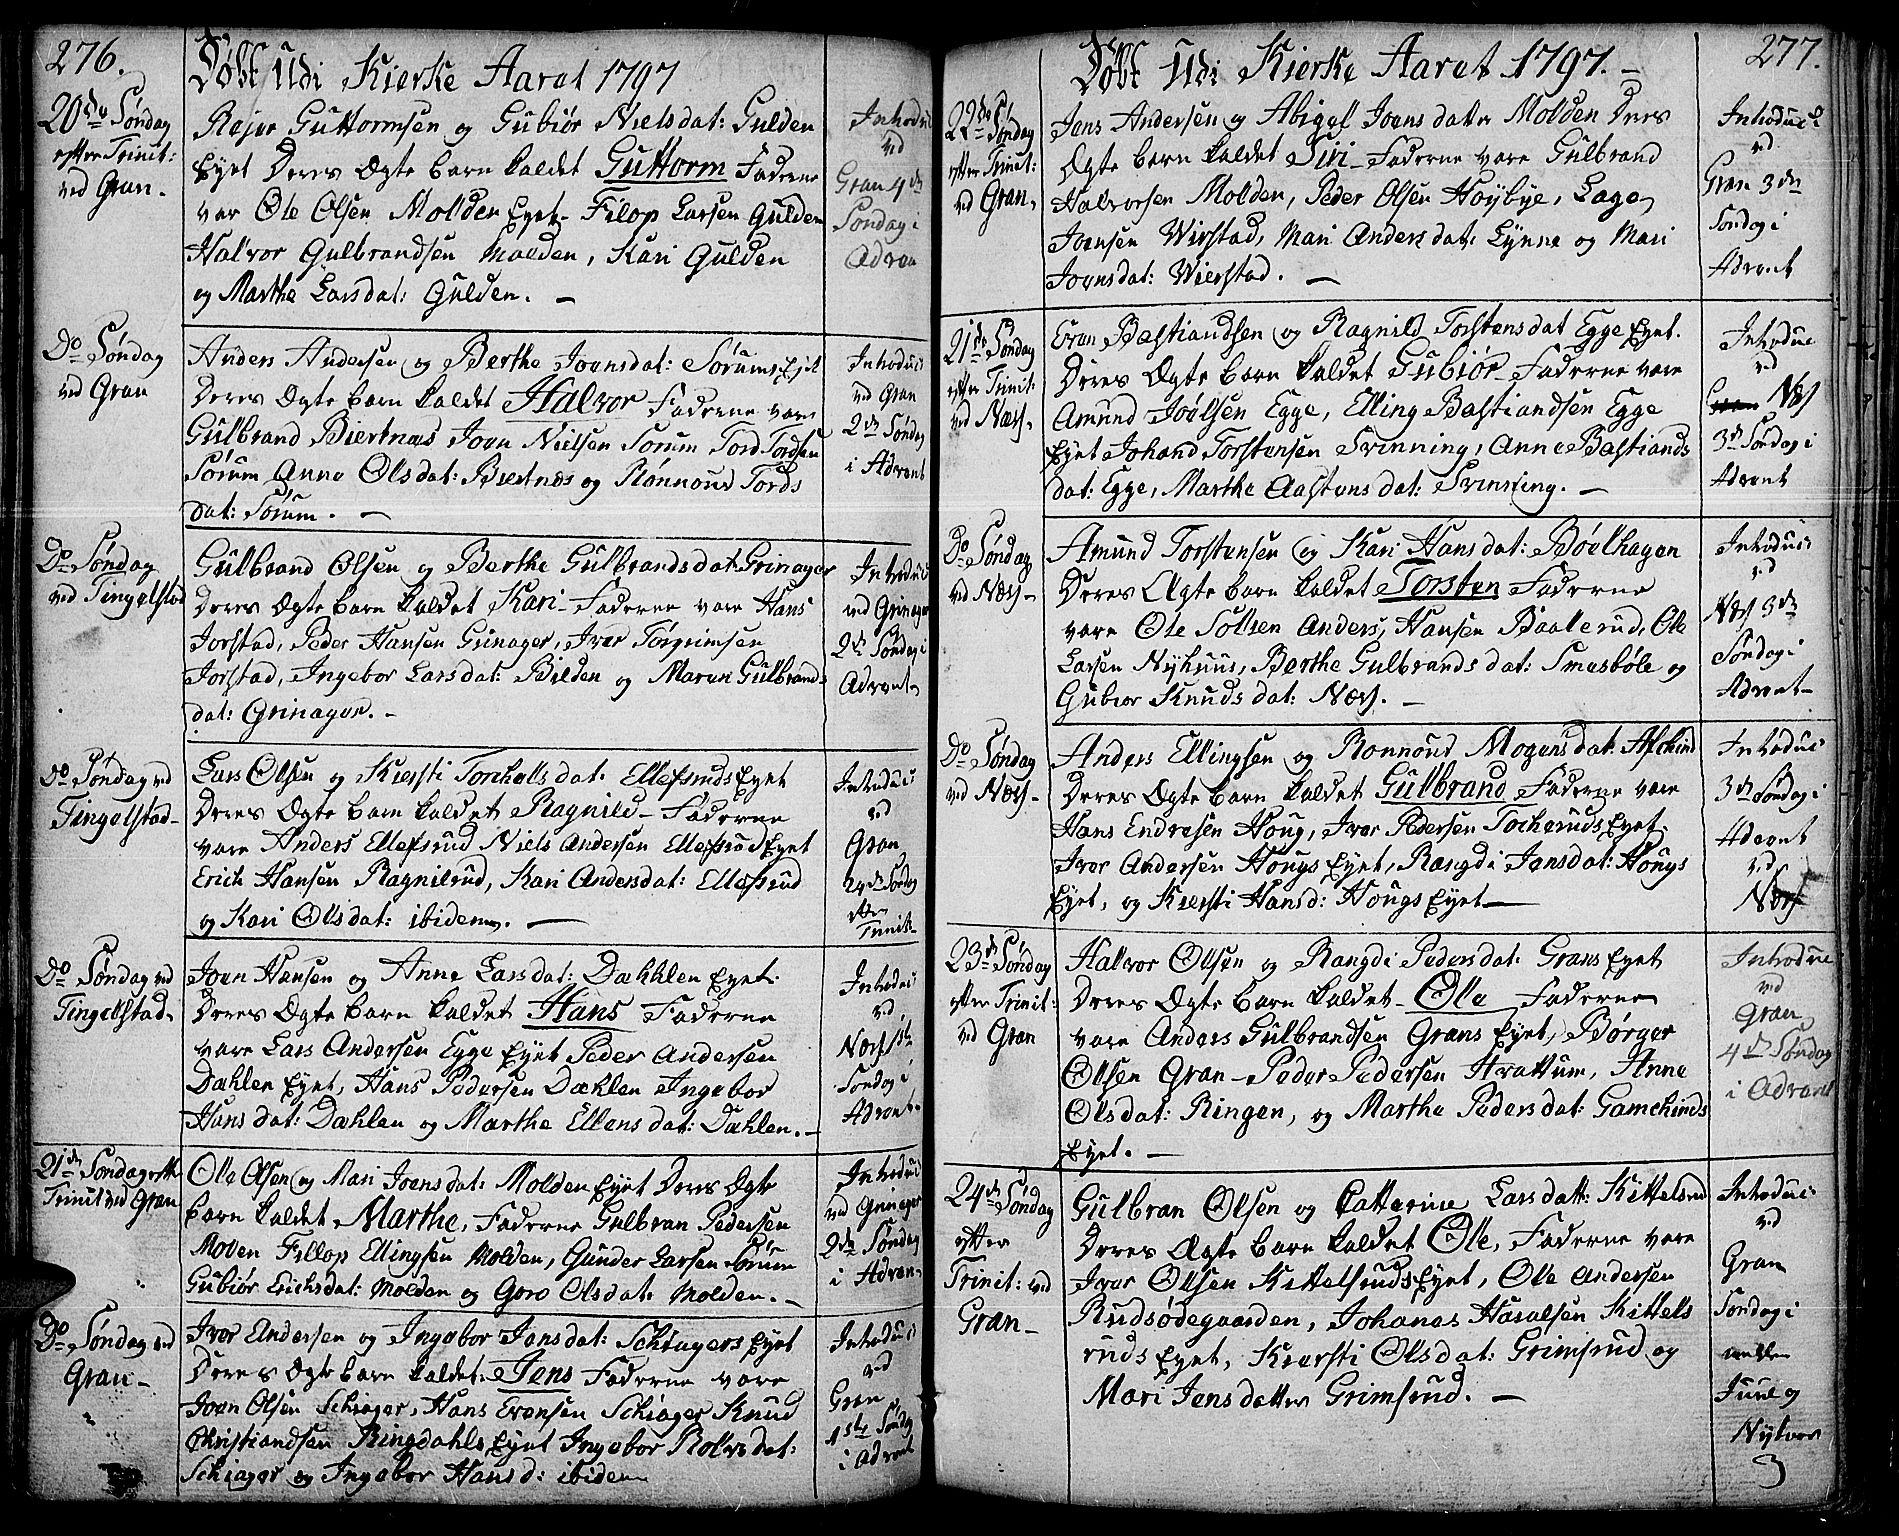 276.
Døbt Udi Kierke Aaret 1797
20de Søndag
efter Trinit:
ved Gran.
Rejer Guttormsen og Gubiør Nielsdat: Gulden
Eyet Deres Ægte barn kaldet Guttorm Faderne
var Ole Olsen Molden Eyet. Filop Larsen Gulden
Halvor Gulbrandsen Molden, Kari Gulden
og Marthe Larsdat: Gulden. —
Introduc
ved
Gran 4de
Søndag i
Adven
Do Søndag
ved Gran
Anders Andersen og Berthe Joensdat: Sørums Ejet
Deres Ægte barn kaldet Halvor Faderne vare
Gulbrand Biertnæs Joen Nielsen Sørum Tord Tordsen
Sørum Anne Olsdat: Biertnæs og Rønnoud Tords
dat: Sørum. —
Introduc
ved Gran
2de Søndag
i Advent
Do Søndag
ved Tingelstad
Gulbrand Olsen og Berthe Gulbrandsdat Grinager
Deres Ægte barn kaldet Kari Faderne vare Hans
Jorstad, Peder Hansen Grinager, Iver Torgrimsen
Jorstad, Ingebor Larsdat: Bilden og Maren Gulbrands
dat: Grinager. —
Introduc
ved Grinager
2de Søndag i
Advent
Do Søndag ved
Tingelstad
Lars Olsen og Kiersti Torchellsdat: Ellefsruds Eyet
Deres Ægte barn kaldet Ragnild Faderne
vare Anders Ellefsrud Niels Andersen Ellefsrud Eyet
Erich Hansen Ragnilrud, Kari Andersdat: Ellefsrud
og Kari Olsdat: ibidem. —
Introduc
ved
Gran
24de Søndag
efter
Trinit
Do Søndag ved
Tingelstad.
Joen Hansen og Anne Larsdat: Dæhlen Eyet.
Deres Ægte barn kaldet Hans Faderne
vare Lars Andersen Egge Eyet Peder Andersen
Dæhlen Eyet, Hans Pedersen Dæhlen Ingebor
Hansdat: Dæhlen og Marthe Ellensdat: Dæhlen. —
Introduc
ved
Næss 1ste
Søndag i
Advent.
21de Søndag efter
Trinit ved Gran
Ole Olsen og Mari Joensdat: Molden Eyet Deres Ægte
barn kaldet Marthe, Faderne Gulbran Pedersen
Moden Fillop Ellingsen Molden, Gunder Larsen Sørum
Gubiør Erichsdat: Molden og Goro Olsdat: Molden. —
Introduc
ved Grinager
2de Søndag
i Adven
Do Søndag ved
Gran
Iver Andersen og Ingebor Jensdat: Schiagers Eyet
Deres Ægte barn kaldet: Jens Faderne vare
Joen Olsen Schiager, Hans Evensen Schiager Knud
Christiandsen Ringdahls Eyet Ingebor Rolvsdat:
Schiager og Ingebor Hansd: ibidem
Introduc
ved
Gran
1ste Søndag
i Advent
277.
Døbt Udi Kierke Aaret 1797. —
22de Søndag
efter Trinit:
ved Gran
Jens Andersen og Abigel Joensdatter Molden Deres
Ægte barn kaldet Siri Faderne vare Gulbrand
Halvorsen Molden, Peder Olsen Høybye, Lage
Joensen Wirstad, Mari Andersdat: Lynne og Mari
Joensdat: Wierstad. —
Introduc
ved
Gran 3de
Søndag i
Advent
21de Søndag
efter Trinit:
ved Næss
Even Bastiandsen og Ragnild Torstensdat Egge Eyet.
Deres Ægte barn kaldet Gubiør Faderne vare
Amund Joelsen Egge, Elling Bastiandsen Egge
Eyet Johand Torstensen Svinning, Anne Bastiands
dat: Egge, Marthe Aastensdat: Svinning. —
Introduc
ved
Næss
3de Søndag i
Advent
Do Søndag
ved Næss
Amund Torstensen og Kari Hansdat: Bøelhagen
Deres Ægte barn kaldet Torsten Faderne
vare Ole Solsen Anders Hansen Baalerud, Ole
Larsen Nyhuus, Berthe Gulbrandsdat: Smesbøle og
Gubiør Knudsdat: Næss. —
Introduc
ved
Næss 3de
Søndag i
Advent
Do Søndag
ved Næss
Anders Ellingsen og Ronnoud Mogensdat: Afskind
Deres Ægte barn kaldet Gulbrand Faderne vare
Hans Endresen Houg, Iver Pedersen Tocheruds Eyet.
Iver Andersen Hougs Eyet, Rangdi Jensdat: Hougs
Eyet, og Kiersti Hansd: Hougs Eyet —
Introduc
3de Søndag i
Advent
ved
Næss
23de Søndag
efter Trinit:
ved Gran
Halvor Olsen og Rangdi Pedersdat: Grans Eyet
Deres Ægte barn kaldet Ole Faderne
vare Anders Gulbrandsen Grans Eyet, Børger
Olsen Gran Peder Pedersen Hvattum, Anne
Olsdat: Ringen, og Marthe Pedersdat: Gamchinds
Eyet. —
Introduc
ved
Gran
4de Søndag
i Advent
24de Søndag
efter
Trinit: ved
Gran
Gulbran Olsen og Catterine Larsdatt: Kittelsrud
Deres Ægte barn kaldet Ole, Faderne vare
Iver Olsen Kittelsruds Eyet, Ole Andersen
Rudsødegaarden, Johanes Havalsen Kittels
ruds Eyet, Kiersti Olsdat: Grimsrud og
Mari Jensdatter Grimsrud. —
Introduc
ved
Gran
Søndag i
mellem
Juul og
Nytaar